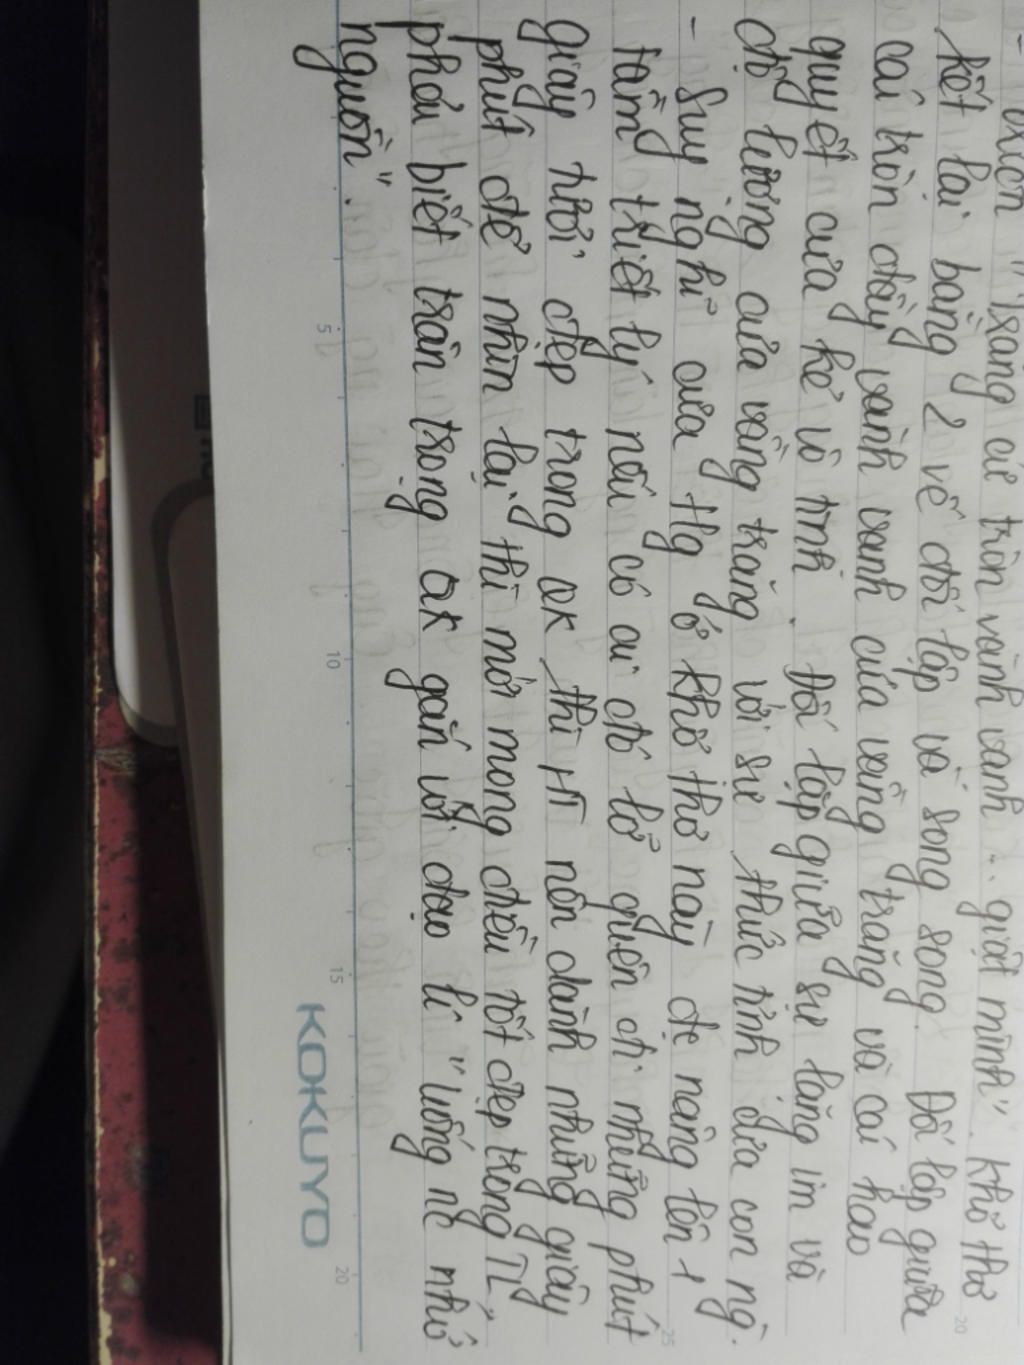 "Trăng cứ tròn vành vạnh ... giật mình". Khổ thơ
kết lại bằng 2 vế đối lập và song song. Đối lập giữa
cái tròn đầy vành vạnh của vầng trăng và cái hao
quyết của kẻ vô tình. Đối lập giữa sự lặng im và
độ lượng của vầng trăng với sự thức tỉnh của con ng.
- Suy nghĩ của tg ở khổ thơ này đc nâng lên 1
tầm triết lý nếu có ai đó lỡ quên đi những phút
giây tươi đẹp trong qk thì H~ nên dành những giây
phút để nhìn lại, thì mới mong điều tốt đẹp trong TL,
phải biết trân trọng qk gắn với đạo lí "uống nc nhớ
nguồn".
5
10
15
20
20
25
KOKUYO